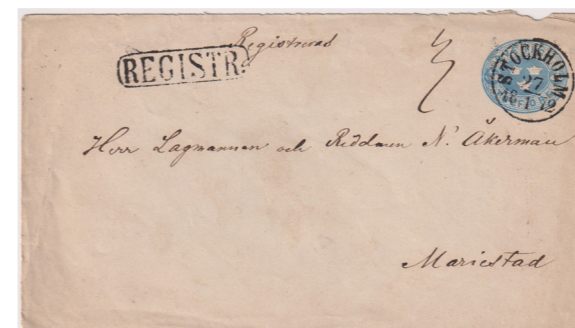 Registrerad
REGISTR.
STOCKHOLM
27
18-1-72
Herr Lagmannen och Riddaren N. Åkerman
Mariestad